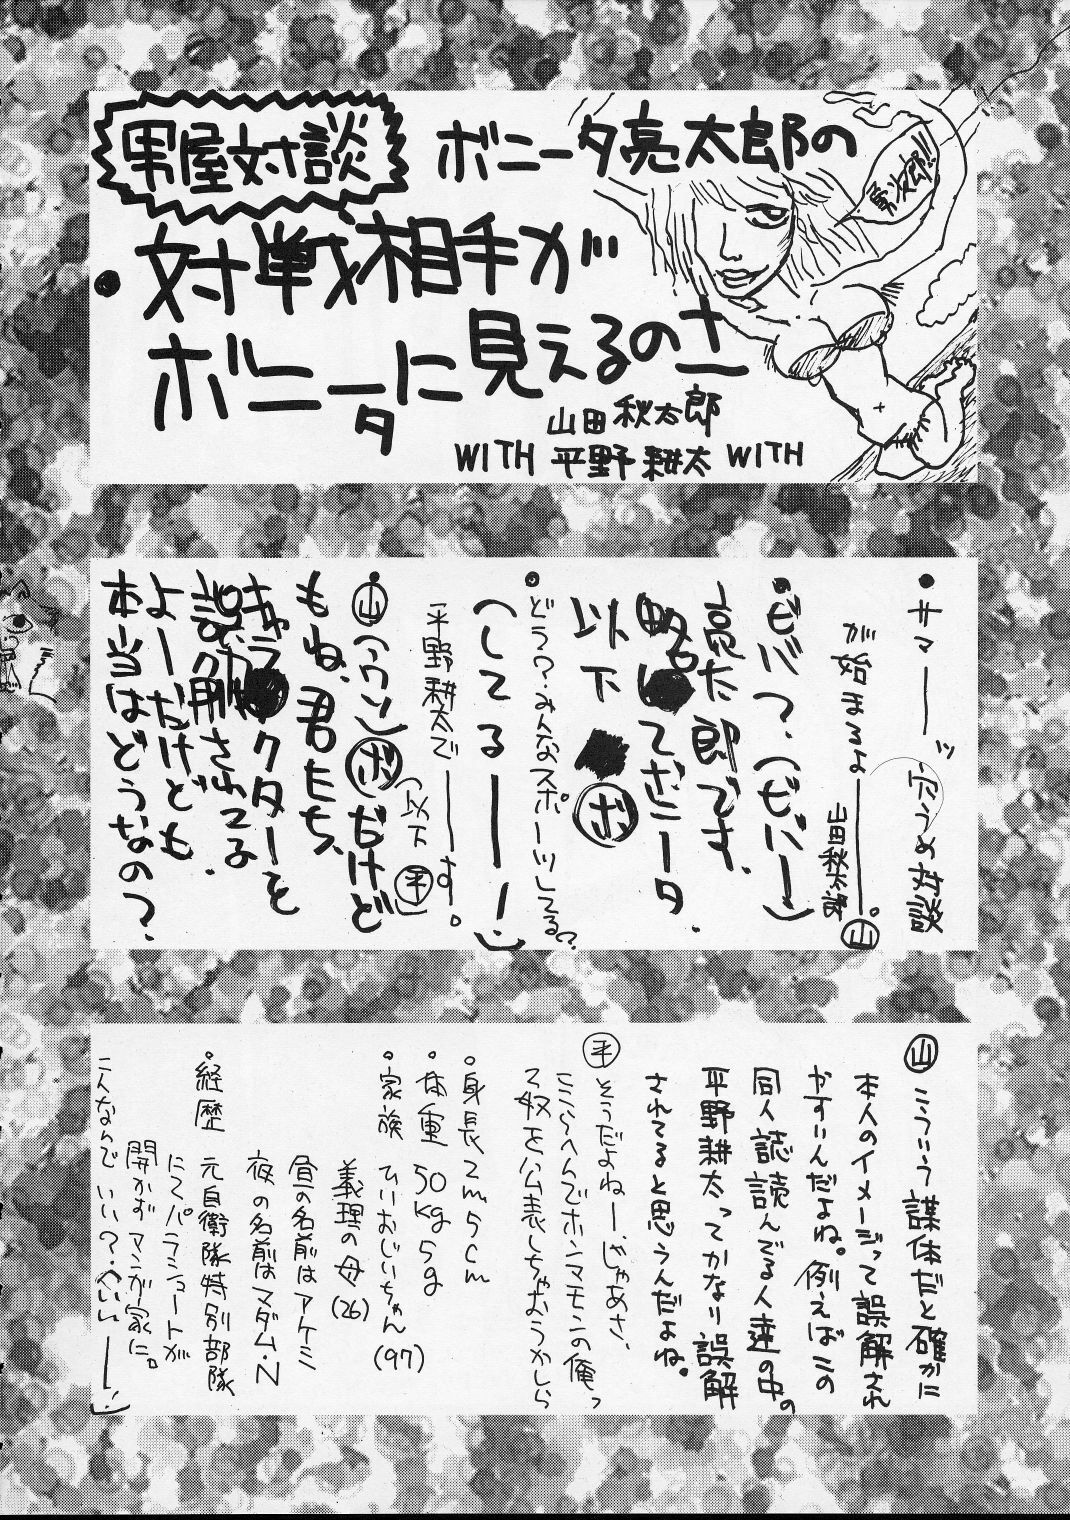 男屋対談
ボニータ亮太郎の
対戦相手が
ボニータに見えるのさー
山田秋太郎
WITH 平野耕太 WITH
・サマーーッ 穴うめ対談
が始まるよーー。
山田秋太郎 山
・ビバ?(ビバー)
亮太郎です。
略してボニータ.
以下 ボ
・どう?みんなスポーツしてる?
(してるーー!)
平野耕太でーーす。
(以下 平)
山(ウソ) ボ だけど
もね、君たち、
キャラクターを
誤解されてる
よーだけども
本当はどうなの?
山 こういう謀体だと確かに
本人のイメージって誤解され
やすいんだよね。例えばこの
同人誌読んでる人達の中の
平野耕太ってかなり誤解
されてると思うんだよね。
平 そうだよねー。じゃあさ、
ここらへんでホンマモンの俺っ
て奴を公表しちゃおうかしら
・身長 2m5cm
・体重 50kg5g
・家族 ひいおじいちゃん(97)
義理の母(26)
昼の名前はアケミ
夜の名前はマダム・N
・経歴 元自衛隊特別部隊
にて、パラシュートが
開かずマンガ家に。
こんなんでいい?(いいーー!)